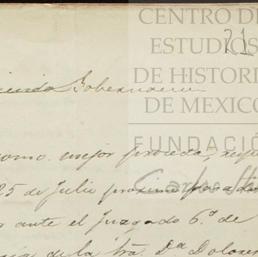 CENTRO DE
ESTUDIOS
DE HISTORI
DE MEXICO
FUNDACIÓ
Carlos
21
Gobernacion
como mejor proceda,
25 de Julio proximo pasado
ante el Juzgado 6º de
de la Sra Da Dolores